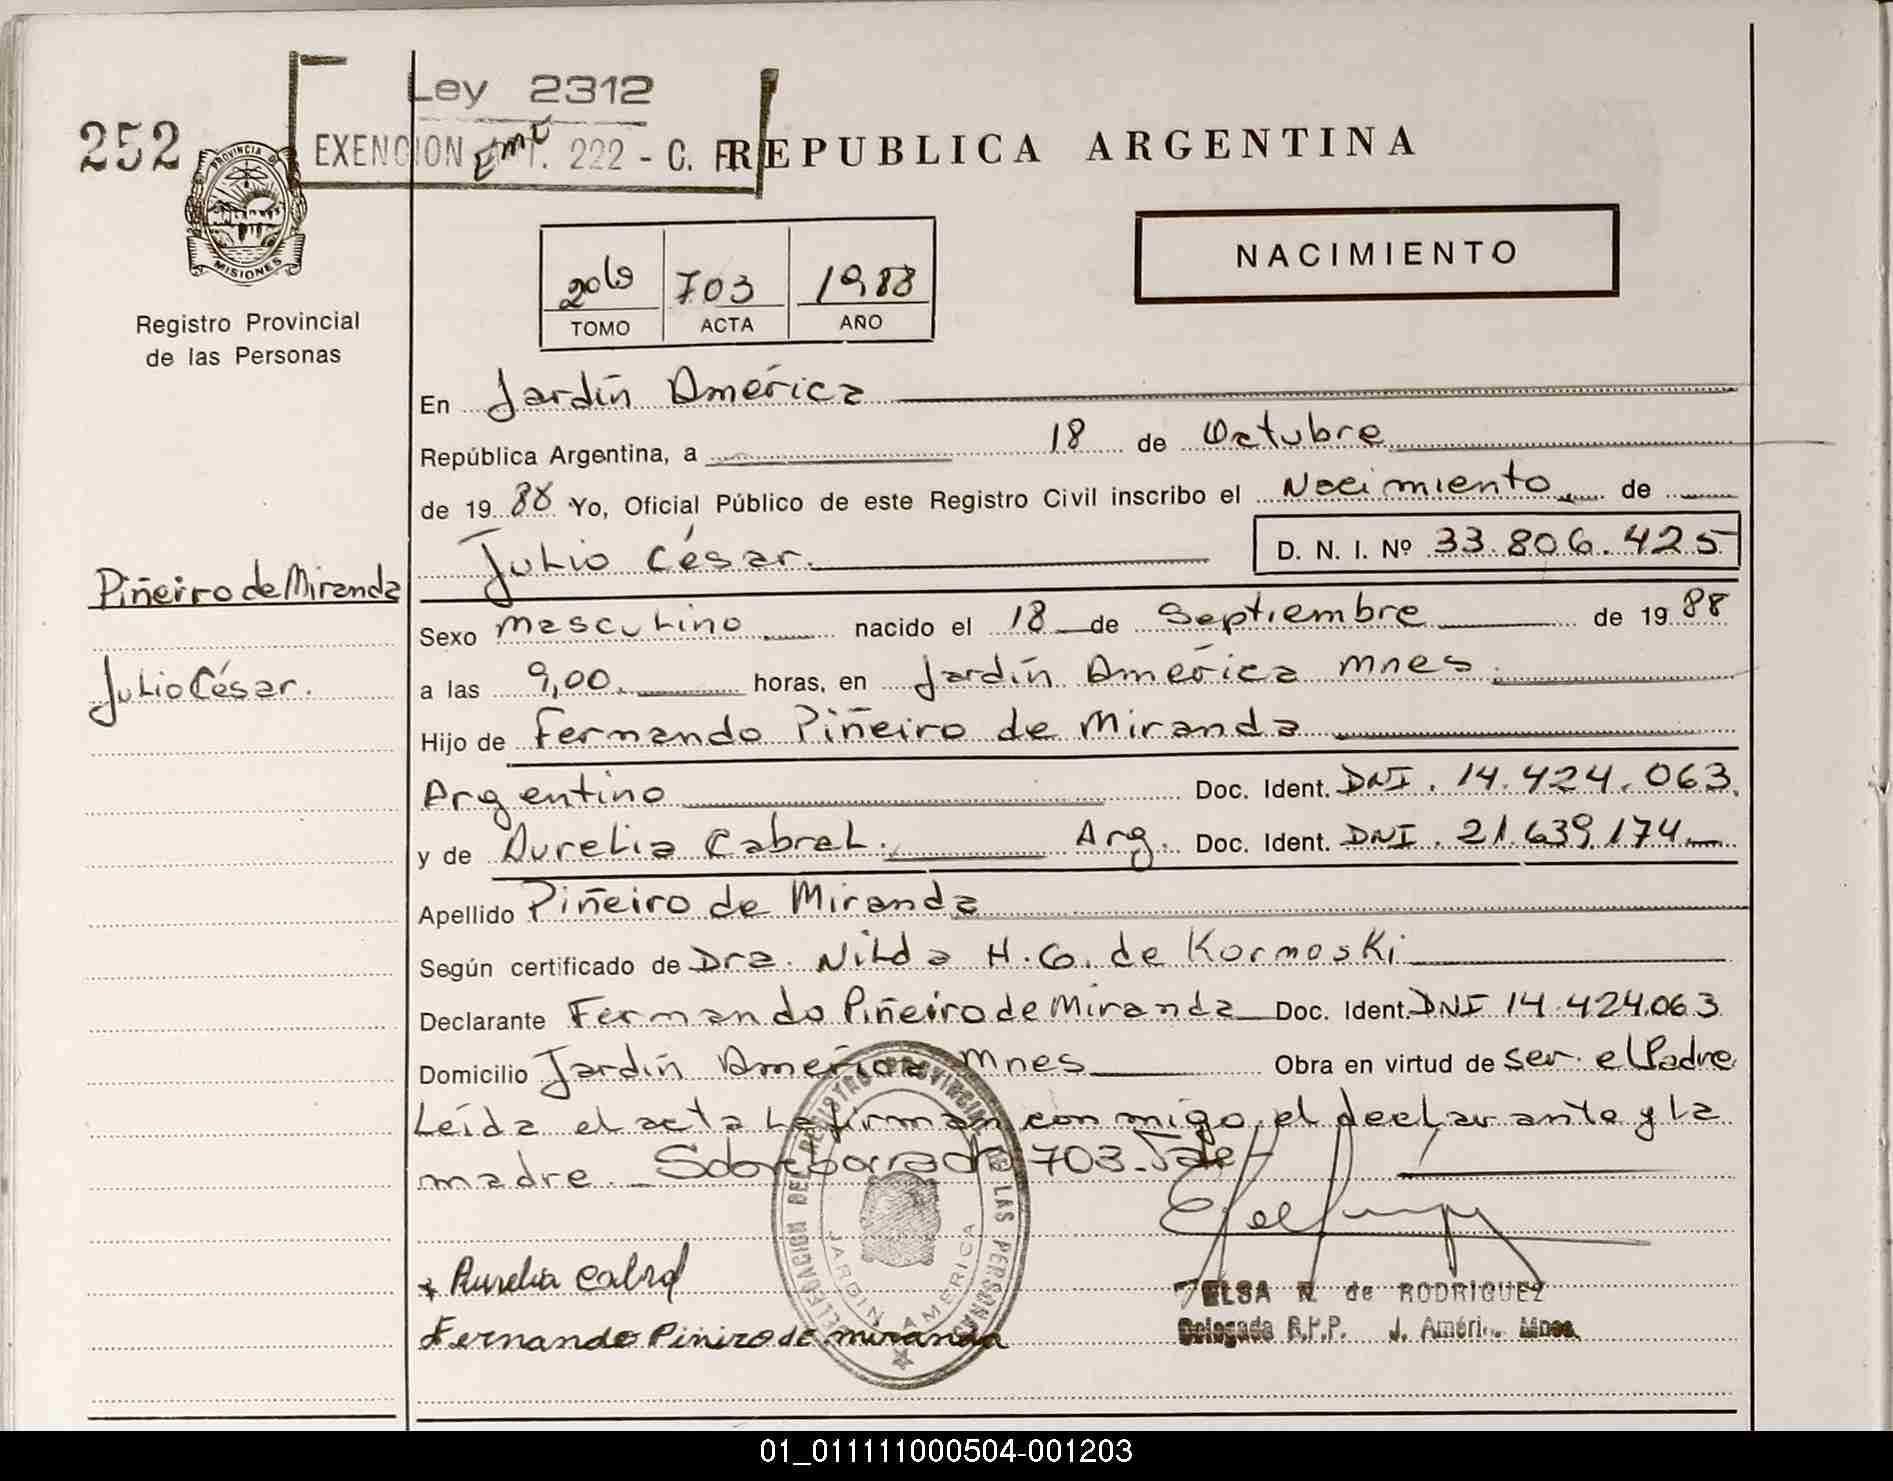 Ley 2312
252
EXENCION 222 - C. F.
REPUBLICA ARGENTINA
PROVINCIA DE
MISIONES
Registro Provincial
de las Personas
703 1988
TOMO ACTA AÑO
NACIMIENTO
En Jardín América
República Argentina, a 18 de Octubre
de 1988 Yo, Oficial Público de este Registro Civil inscribo el Nacimiento de
Julio César. D. N. I. Nº 33.806.425
Piñeiro de Miranda
Julio César.
Sexo masculino nacido el 18 de Septiembre de 1988
a las 9,00. horas, en Jardín América Mnes.
Hijo de Fernando Piñeiro de Miranda
Argentino Doc. Ident. DNI. 14.424.063.
y de Aurelia Cabral. Arg. Doc. Ident. DNI. 21.639.174
Apellido Piñeiro de Miranda
Según certificado de Dra. Nilda H. G. de Kormoski
Declarante Fernando Piñeiro de Miranda Doc. Ident. DNI 14.424.063
Domicilio Jardín América Mnes Obra en virtud de ser el Padre
Leída el acta la firman con migo, el declarante y la
madre. Sobreborrado 703. Vale
DELEGACION DEL REGISTRO PROVINCIAL DE LAS PERSONAS
JARDIN AMERICA
Aurelia Cabral
Fernando Piñiro de miranda
ELSA N. de RODRIGUEZ
Delegada R.P.P. J. Améri. Mnes.
01_011111000504-001203